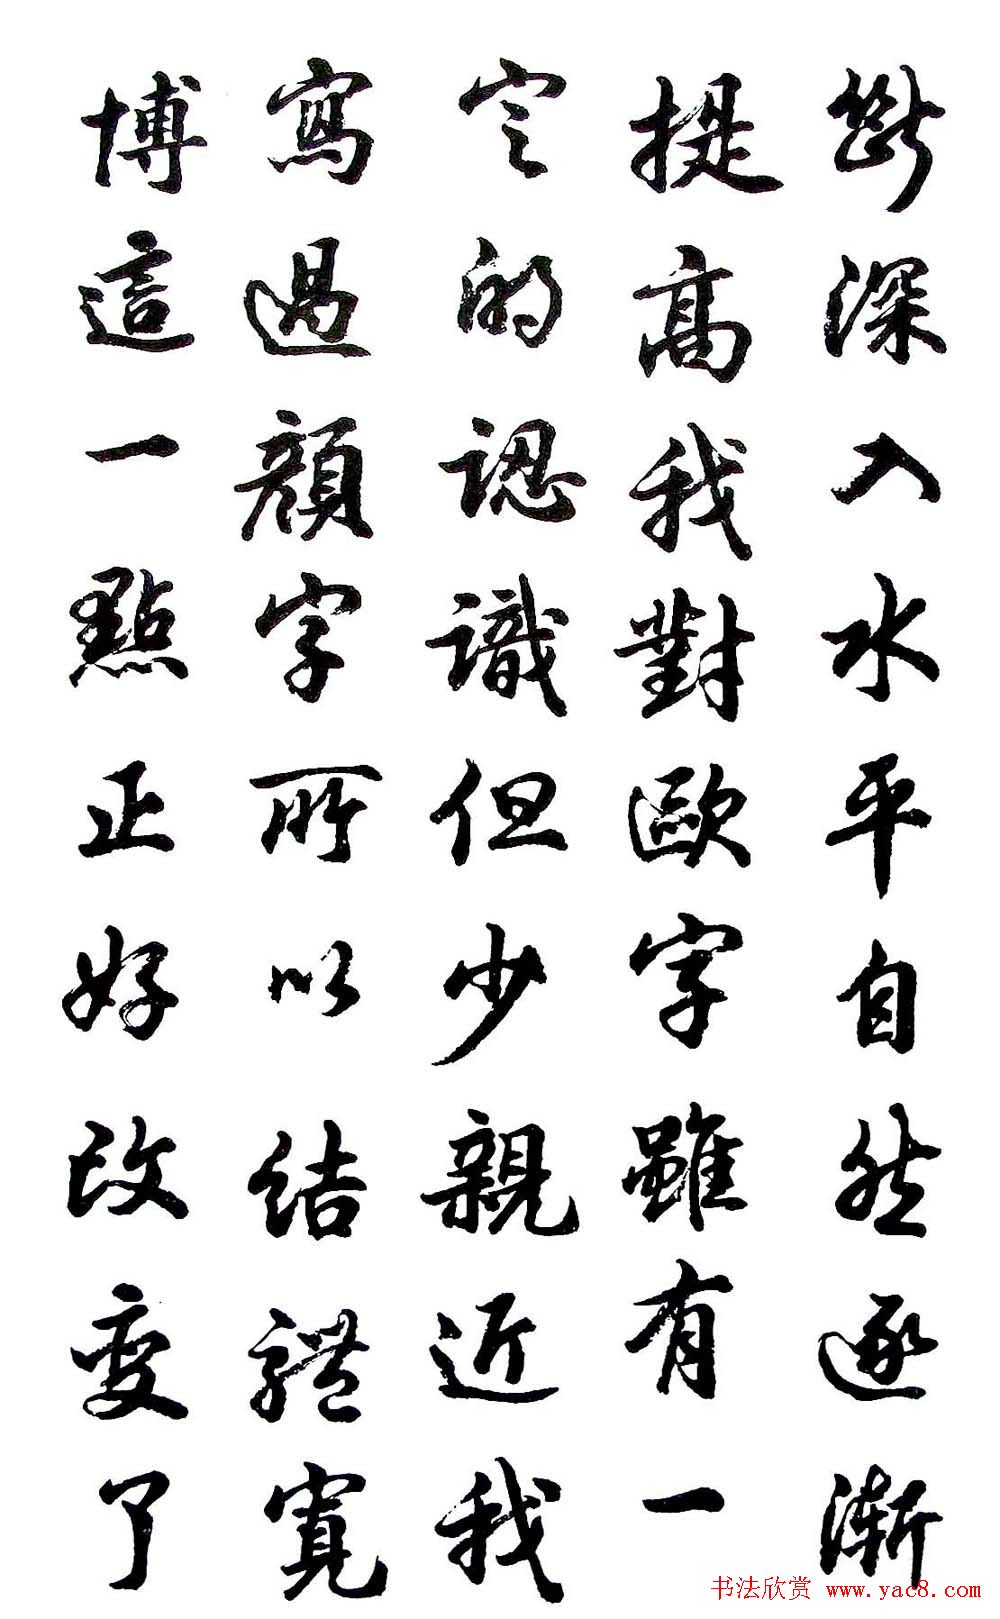 斷深入水平自然逐漸
提高我對歐字雖有一
定的認識但少親近我
寫過顏字所以結體寬
博這一點正好改變了
书法欣赏 www.yac8.com